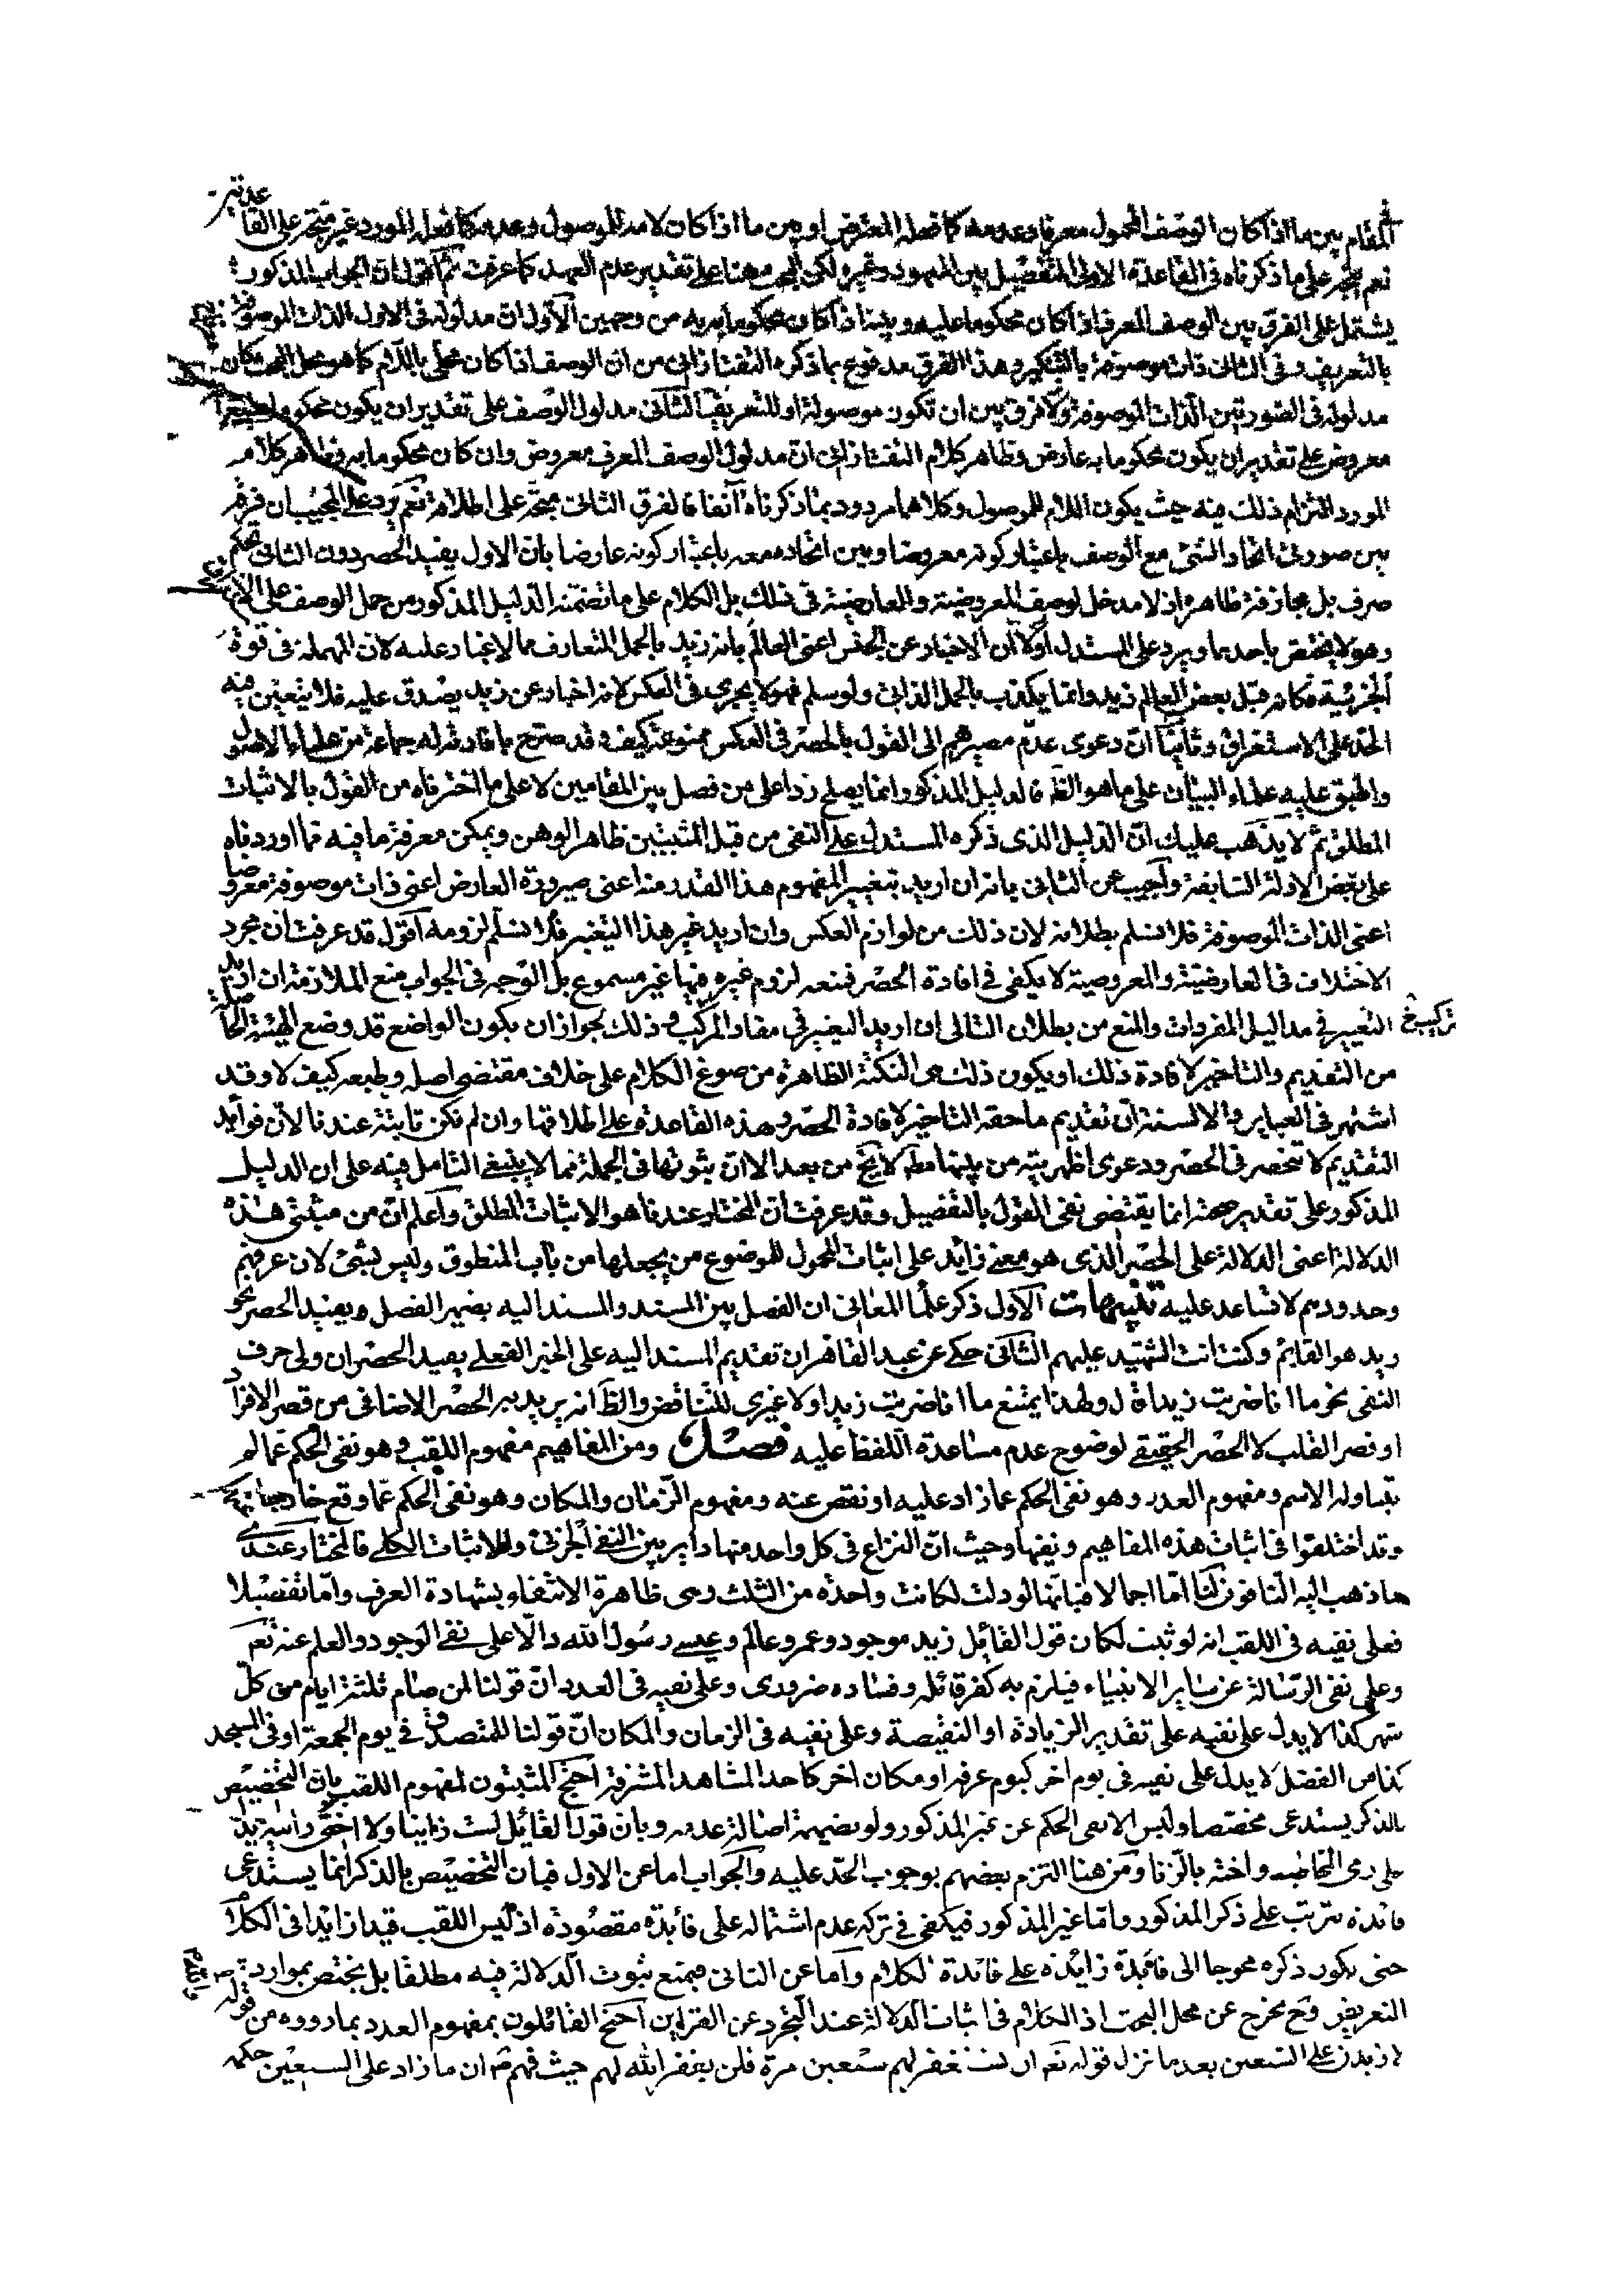 المقام بين ما اذا كان الوصف المحمول معرفا وعدمه كما فعله المعترض او بين ما اذا كان لامه للموصول وعدمه كما فعله المورد غير متجه على القاعدتين
نعم يتجه على ما ذكرناه في القاعدة الاولى التفصيل بين المعهود وغيره لكن البحث هنا على تقدير عدم العهد كما عرفت ثم اقول ان الجواب المذكور
يشتمل على الفرق بين الوصف المعرف اذا كان محكوما عليه وبينه اذا كان محكوما به من وجهين الاول ان مدلوله في الاول الذات الموصوفة
بالتعريف وفى الثانى ذات موصوفة بالتنكير وهذا الفرق مدفوع بما ذكره التفتازانى من ان الوصف اذا كان محلى باللام كما هو محل البحث كان
مدلوله في الصورتين الذات الموصوفة ولا فرق بين ان تكون موصولة او للتعريف الثانى مدلول الوصف على تقدير ان يكون محكوما عليه
معروض على تقدير ان يكون محكوما به عارض وظاهر كلام التفتازانى ان مدلول الوصف المعرف معروض وان كان محكوما به وظاهر كلام
المورد التزام ذلك فيه حيث يكون اللام للموصول وكلاهما مردود بما ذكرناه آنفا فالفرق الثانى متجه على اطلاقه نعم يرد على المجيب ان فرقه
بين صورتى اتحاد الشئ مع الوصف باعتبار كونه معروضا وبين اتحاده معه باعتبار كونه عارضا بان الاول يفيد الحصر دون الثانى تحكم
صرف بل مجازفة ظاهرة اذ لا مدخل لوصف المعروضية والعارضية في ذلك بل الكلام على ما تضمنه الدليل المذكور من حمل الوصف على
وهو لا يختص باحدهما ويرد على المستدل اولا ان الاخبار عن الجنس اعنى العالم بانه زيد بالحمل المتعارف مما لا غبار عليه لان المهملة فى قوة
الجزئية فكانه قيل بعض العالم زيد وانما يكذب بالحمل الذاتى ولو سلم فهو لا يجرى فى العكس لانه اخبار عن زيد يصدق عليه فلا يتعين فيه
الحمل على الاستغراق وثانيا ان دعوى عدم مصيرهم الى القول بالحصر فى العكس ممنوعة كيف وقد صرح بافادته له جماعة من علماء الاصول
واطبق عليه علماء البيان على ما هو الظ فالدليل المذكور انما يصلح ردا على من فصل بين المقامين لا على ما اخترناه من القول بالاثبات
المطلق ثم لا يذهب عليك ان الدليل الذى ذكره المستدل على النفى من قبل المثبتين ظاهر الوهن ويمكن معرفة ما فيه مما اوردناه
على بعض الادلة السابقة واجيب عن الثانى بانه ان اريد بتغيير المفهوم هذا القدر منه اعنى صيرورة العارض اعنى ذات موصوفة معروضا
اعنى الذات الموصوفة فلا نسلم بطلانه لان ذلك من لوازم العكس وان اريد غير هذا التغيير فلا نسلم لزومه اقول قد عرفت ان مجرد
الاختلاف في العارضية والمعروضية لا يكفى فى افادة الحصر فمنعه لزوم غيره فيها غير مسموع بل الوجه فى الجواب منع الملازمة ان اريد
التغيير في مداليل المفردات والمنع من بطلان التالى ان اريد التغيير في مفاد المركب وذلك لجواز ان يكون الواضع قد وضع الهيئة الحاصلة تركيبخ
من التقديم والتاخير لافادة ذلك او يكون ذلك هى النكتة الظاهرة من صوغ الكلام على خلاف مقتضى اصله وطبعه كيف لا وقد
اشتهر فى العبائر والالسنة ان تقديم ما حقه التاخير لافادة الحصر وهذه القاعدة على اطلاقها وان لم تكن ثابتة عندنا لان فوائد
التقديم لا تنحصر في الحصر ودعوى اظهريته من بينها مط لا يخ من بعد الا ان ثبوتها فى الجملة مما لا ينبغى التامل فيه على ان الدليل
المذكور على تقدير صحته انما يقتضى نفى القول بالتفصيل وقد عرفت ان المختار عندنا هو الاثبات المطلق واعلم ان من مثبتى هذه
الدلالة اعنى الدلالة على الحصر الذى هو معنى زائد على اثبات المحمول للموضوع من يجعلها من باب المنطوق وليس بشئ لان عرفهم
وحدودهم لا تساعد عليه تنبيهات الاول ذكر علماء المعانى ان الفصل بين المسند والمسند اليه بضمير الفصل ويفيد الحصر نحو
زيد هو القائم وكنت انت الشهيد عليهم الثانى حكى عن عبد القاهر ان تقديم المسند اليه على الخبر الفعلى يفيد الحصر ان ولى حرف
النفى نحو ما انا ضربت زيدا قال ولهذا يمتنع ما انا ضربت زيدا ولا غيرى للتناقض والظ انه يريد به الحصر الاضافى من قصر الافراد
او قصر القلب لا الحصر الحقيقى لوضوح عدم مساعدة اللفظ عليه فصل ومن المفاهيم مفهوم اللقب وهو نفى الحكم عما لم
يتناوله الاسم ومفهوم العدد وهو نفى الحكم عما زاد عليه او نقص عنه ومفهوم الزمان والمكان وهو نفى الحكم عما وقع خارجا
وقد اختلفوا فى اثبات هذه المفاهيم ونفيها وحيث ان النزاع فى كل واحد منها دائر بين النفى الجزئى والاثبات الكلى فالمختار عندى
ما ذهب اليه النافون لنا اما اجمالا فبانها لو دلت لكانت واحدة من الثلث وهى ظاهرة الانتفاء بشهادة العرف واما تفصيلا
فعلى نفيه فى اللقب انه لو ثبت لكان قول القائل زيد موجود وعمرو عالم وعيسى رسول الله دالا على نفى الوجود والعلم عنه تعم
وعلى نفى الرسالة عن ساير الانبياء فيلزم به كفر قائله وفساده ضرورى وعلى نفيه فى العدد ان قولنا لمن صام ثلثة ايام من كل
شهر كذا لا يدل على نفيه على تقدير الزيادة او النقيصة وعلى نفيه فى الزمان والمكان ان قولنا للمتصدق فى يوم الجمعة او فى المسجد
كذا من الفضل لا يدل على نفيه فى يوم اخر كيوم عرفة او مكان اخر كاحد المشاهد المشرفة احتج المثبتون لمفهوم اللقب بان التخصيص
بالذكر يستدعى مخصصا وليس الا نفى الحكم عن غير المذكور ولو بضميمة اصالة عدمه وبان قول القائل لست زانيا ولا اختى زانية يدل
على رمى المخاطب واخته بالزنا ومن هنا التزم بعضهم بوجوب الحد عليه والجواب اما عن الاول فبان التخصيص بالذكر انما يستدعى
فائدة تترتب على ذكر المذكور واما غير المذكور فيكفى فى تركه عدم اشتماله على فائدة مقصودة اذ ليس اللقب قيدا زايدا فى الكلام
حتى يكون ذكره محوجا الى فائدة زايدة على فائدة الكلام واما عن الثانى فبمنع ثبوت الدلالة فيه مطلقا بل يختص بموارد
التعريض وح يخرج عن محل البحث اذ الكلام فى اثبات الدلالة عند التجرد عن القراين احتج القائلون بمفهوم العدد بما رووه من قوله
لازيدن على السبعين بعد ما نزل قوله تعم ان تستغفر لهم سبعين مرة فلن يغفر الله لهم حيث فهم ص ان ما زاد على السبعين حكمه